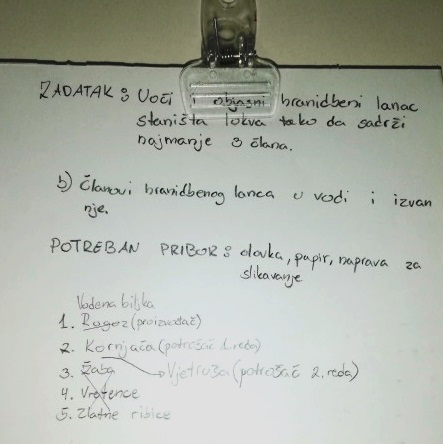 ZADATAK: Uoči i objasni hranidbeni lanac
staništa lokva tako da sadrži
najmanje 3 člana.
b) Članovi hranidbenog lanca u vodi i izvan
nje.
POTREBAN PRIBOR: olovka, papir, naprava za
slikavanje
Vodena biljka
1. Rogoz (proizvođač)
2. Kornjača (potrošač 1. reda)
3. Žaba → Vjetruša (potrošač 2. reda)
4. Vretence
5. Zlatne ribice